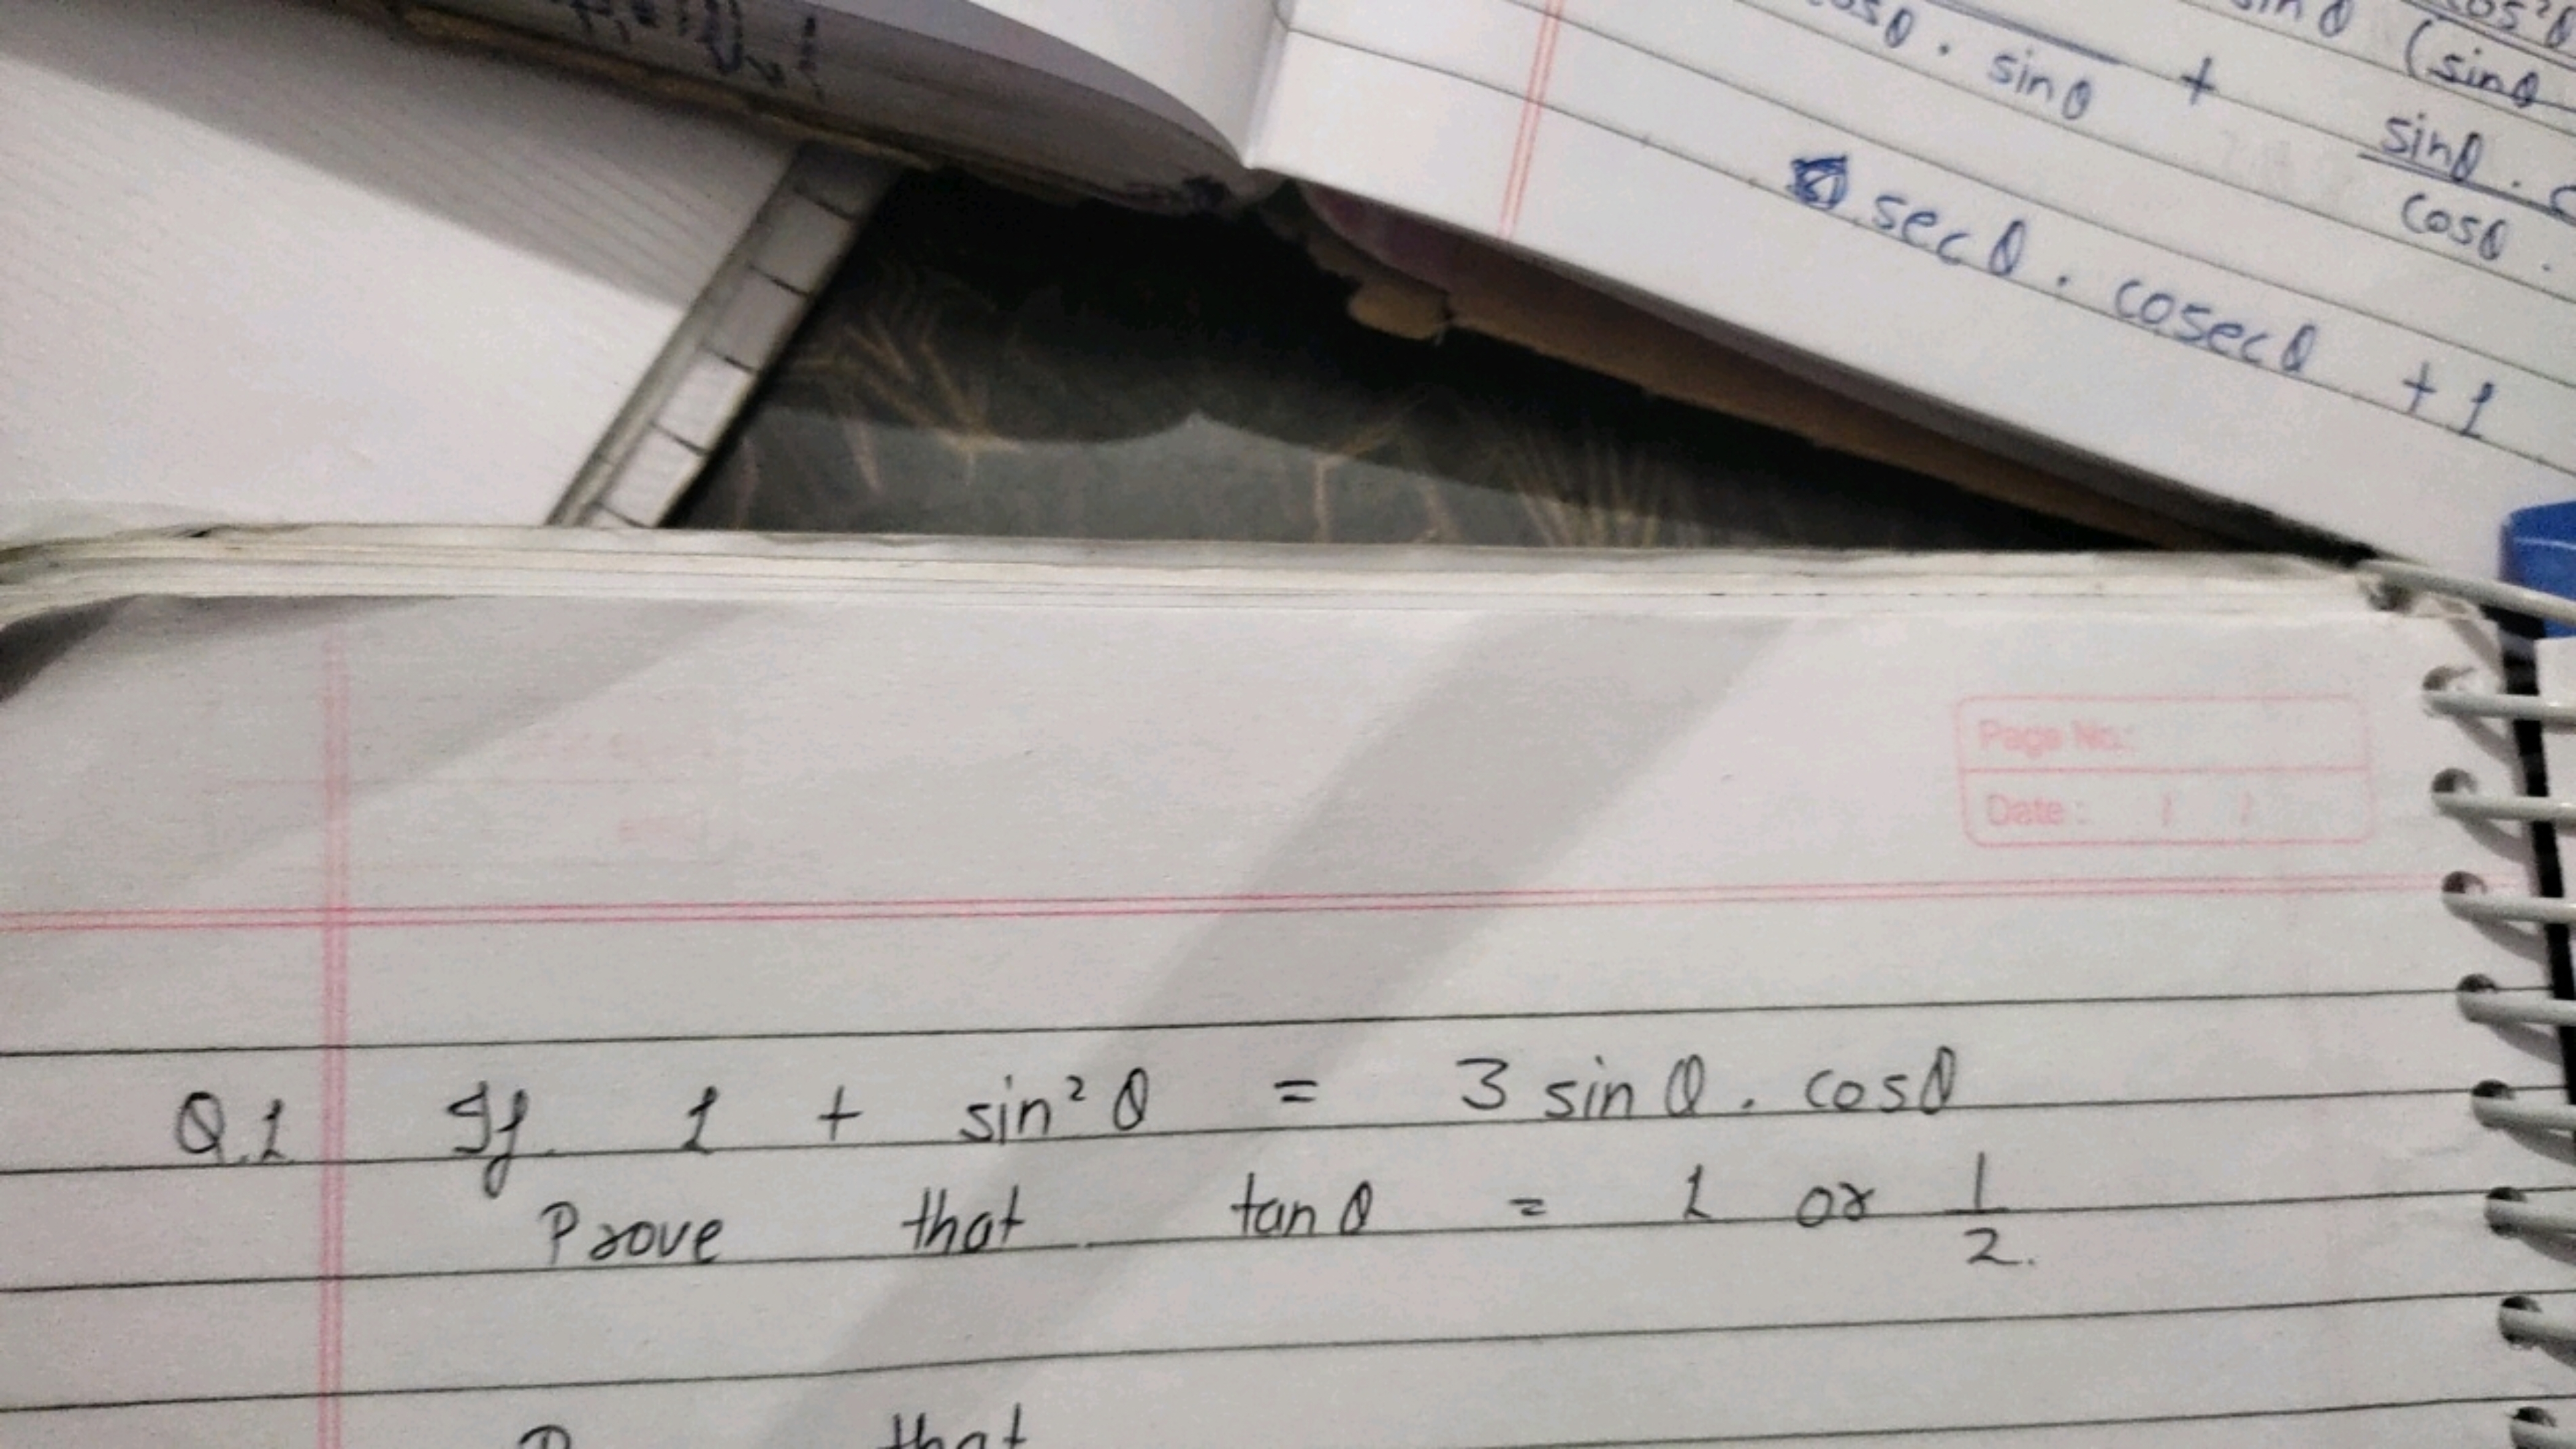 cosθ . sinθ + sinθ (sinθ
sinθ .
cosθ .
secθ . cosecθ + 1
Page No.:
Date : / /
Q.1 If 1 + sin² θ = 3 sin θ . cosθ
Prove that tan θ = 1 or 1/2.
that